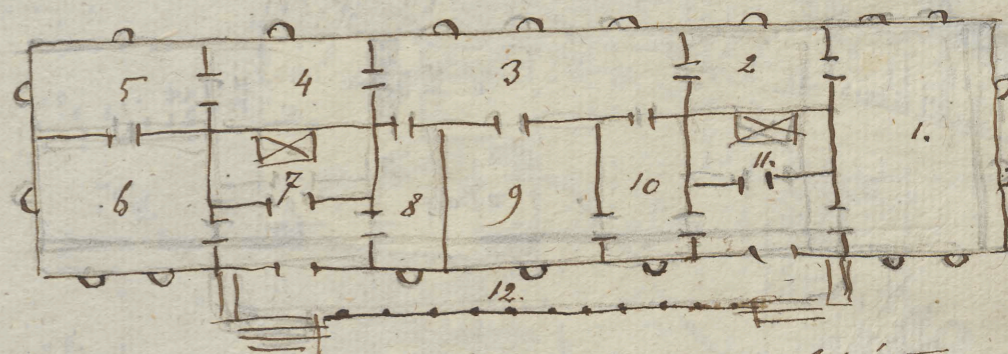 5 4 3 2 1.
6 7 8 9 10 11.
12.